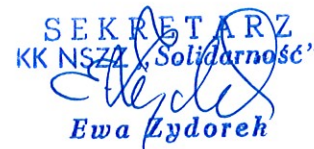 SEKRETARZ
KK NSZZ „Solidarność’
Ewa Zydorek